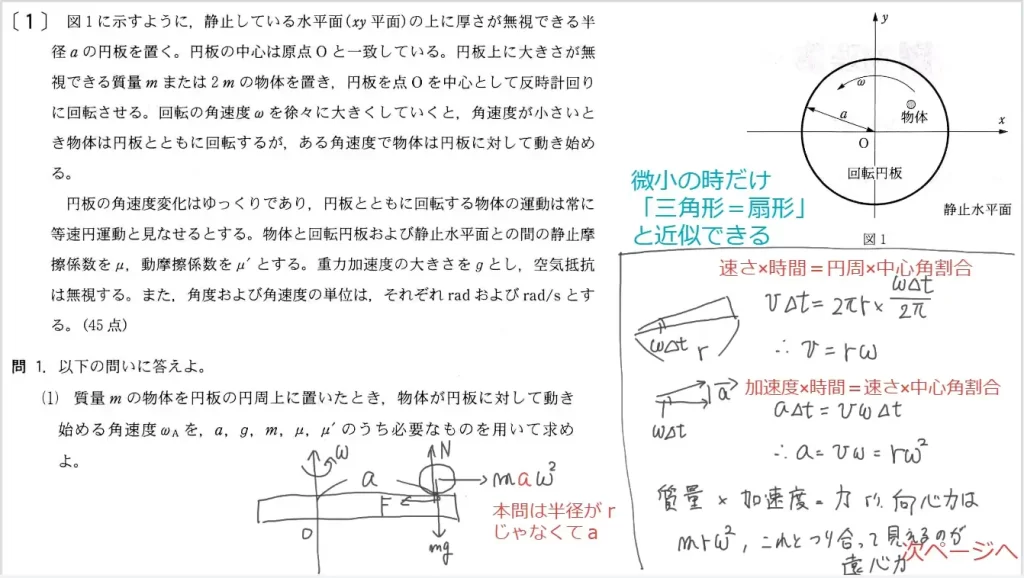 〔1〕 図1に示すように，静止している水平面(xy平面)の上に厚さが無視できる半
径aの円板を置く。円板の中心は原点Oと一致している。円板上に大きさが無
視できる質量mまたは2mの物体を置き，円板を点Oを中心として反時計回り
に回転させる。回転の角速度ωを徐々に大きくしていくと，角速度が小さいと
き物体は円板とともに回転するが，ある角速度で物体は円板に対して動き始め
る。
円板の角速度変化はゆっくりであり，円板とともに回転する物体の運動は常に
等速円運動と見なせるとする。物体と回転円板および静止水平面との間の静止摩
擦係数をμ，動摩擦係数をμ′とする。重力加速度の大きさをgとし，空気抵抗
は無視する。また，角度および角速度の単位は，それぞれradおよびrad/sとす
る。(45点)
問 1．以下の問いに答えよ。
(1) 質量mの物体を円板の円周上に置いたとき，物体が円板に対して動き
始める角速度ωAを，a，g，m，μ，μ′のうち必要なものを用いて求め
よ。
ω
a
N
F
maω²
O
mg
本問は半径がr
じゃなくてa
y
ω
a
物体
x
O
回転円板
静止水平面
図1
微小の時だけ
「三角形＝扇形」
と近似できる
速さ×時間＝円周×中心角割合
vΔt＝2πr×ωΔt/2π
ωΔt
r
∴ v＝rω
加速度×時間＝速さ×中心角割合
a
ωΔt
aΔt＝vωΔt
∴ a＝vω＝rω²
質量×加速度＝力より，向心力は
mrω²，これとつり合って見えるのが
遠心力
次ページへ